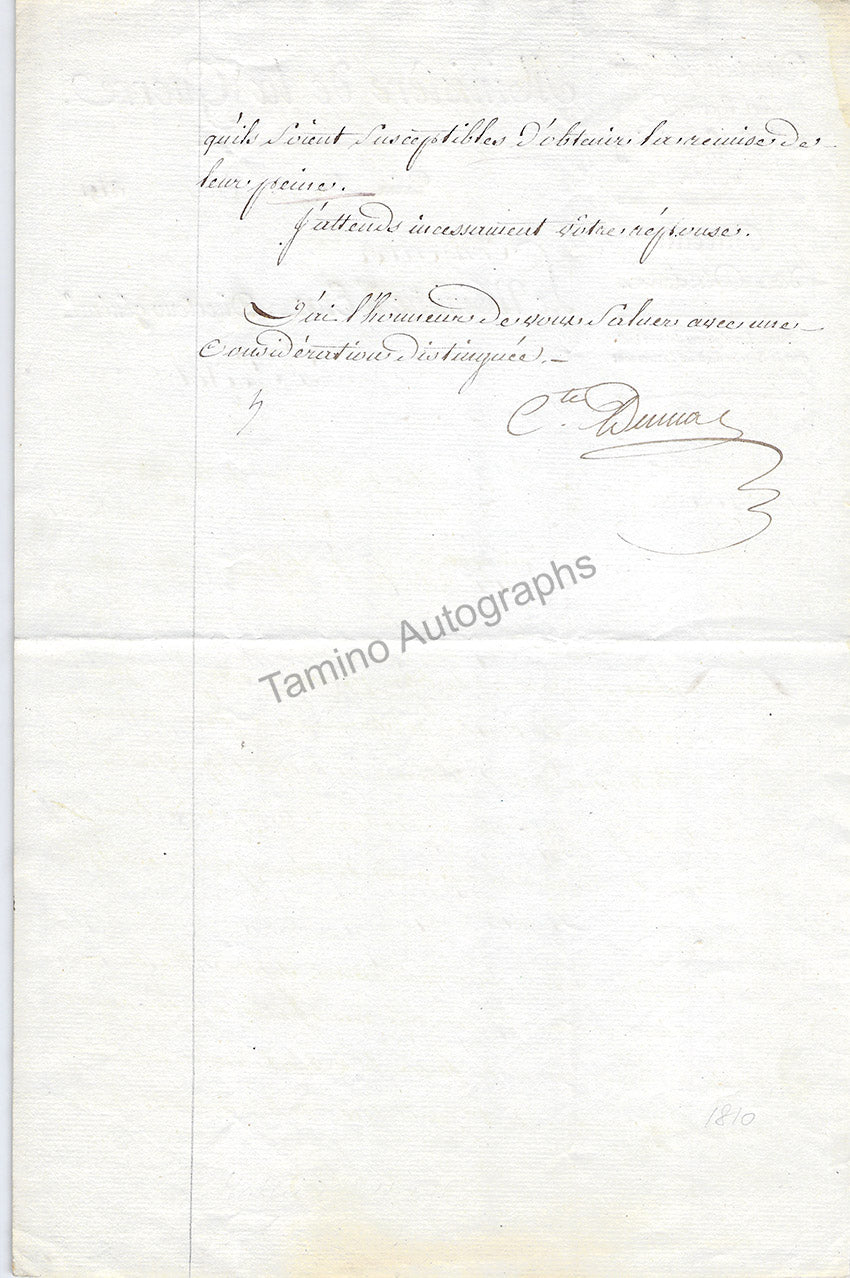 qu'ils soient susceptibles d'obtenir la remise de
leur peine.
J'attends incessament votre réponse.
J'ai l'honneur de vous saluer avec une
considération distinguée.
Cte. Dumas
Tamino Autographs
1810